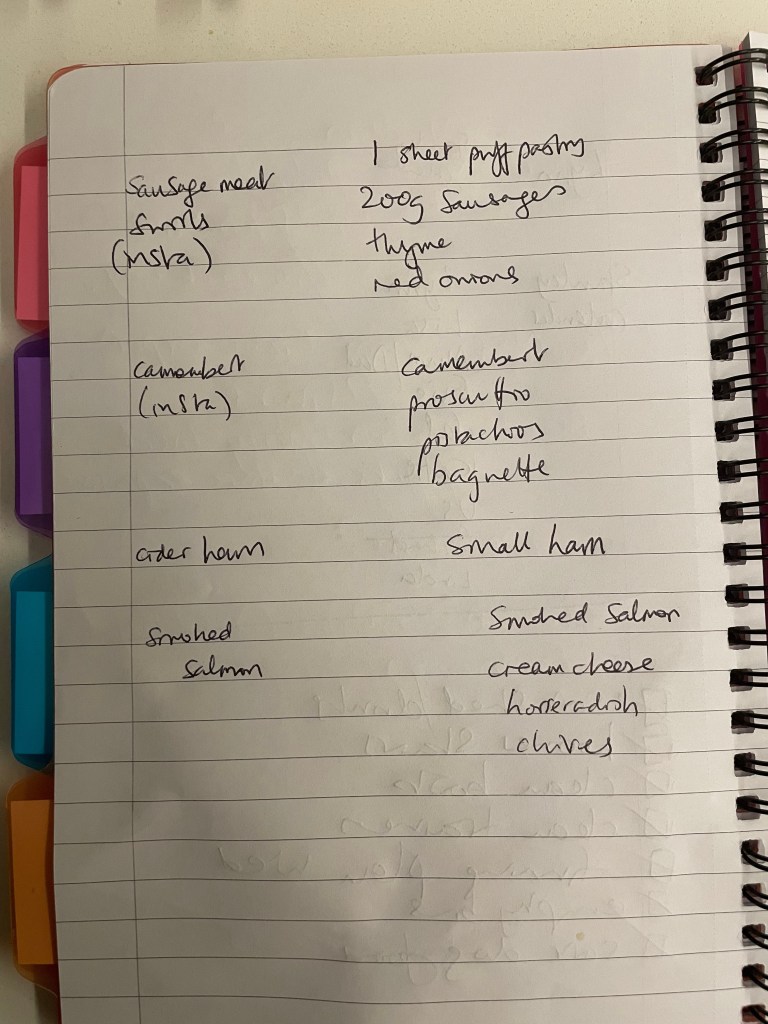 1 sheet puff pastry
Sausage meat
200g Sausages
swirls
thyme
(insta)
red onions
camembert
camembert
(insta)
proscuttio
pistachios
baguette
cider ham
small ham
Smoked Salmon
Smoked
Salmon
cream cheese
horseradish
chives